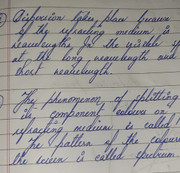 Dispersion takes place because
of the refracting medium is
wavelengths for the visible
at the long wavelength and
short wavelength.
The phenomenon of splitting
its component colours on
refracting medium is called
The pattern of the colours
the screen is called spectrum.